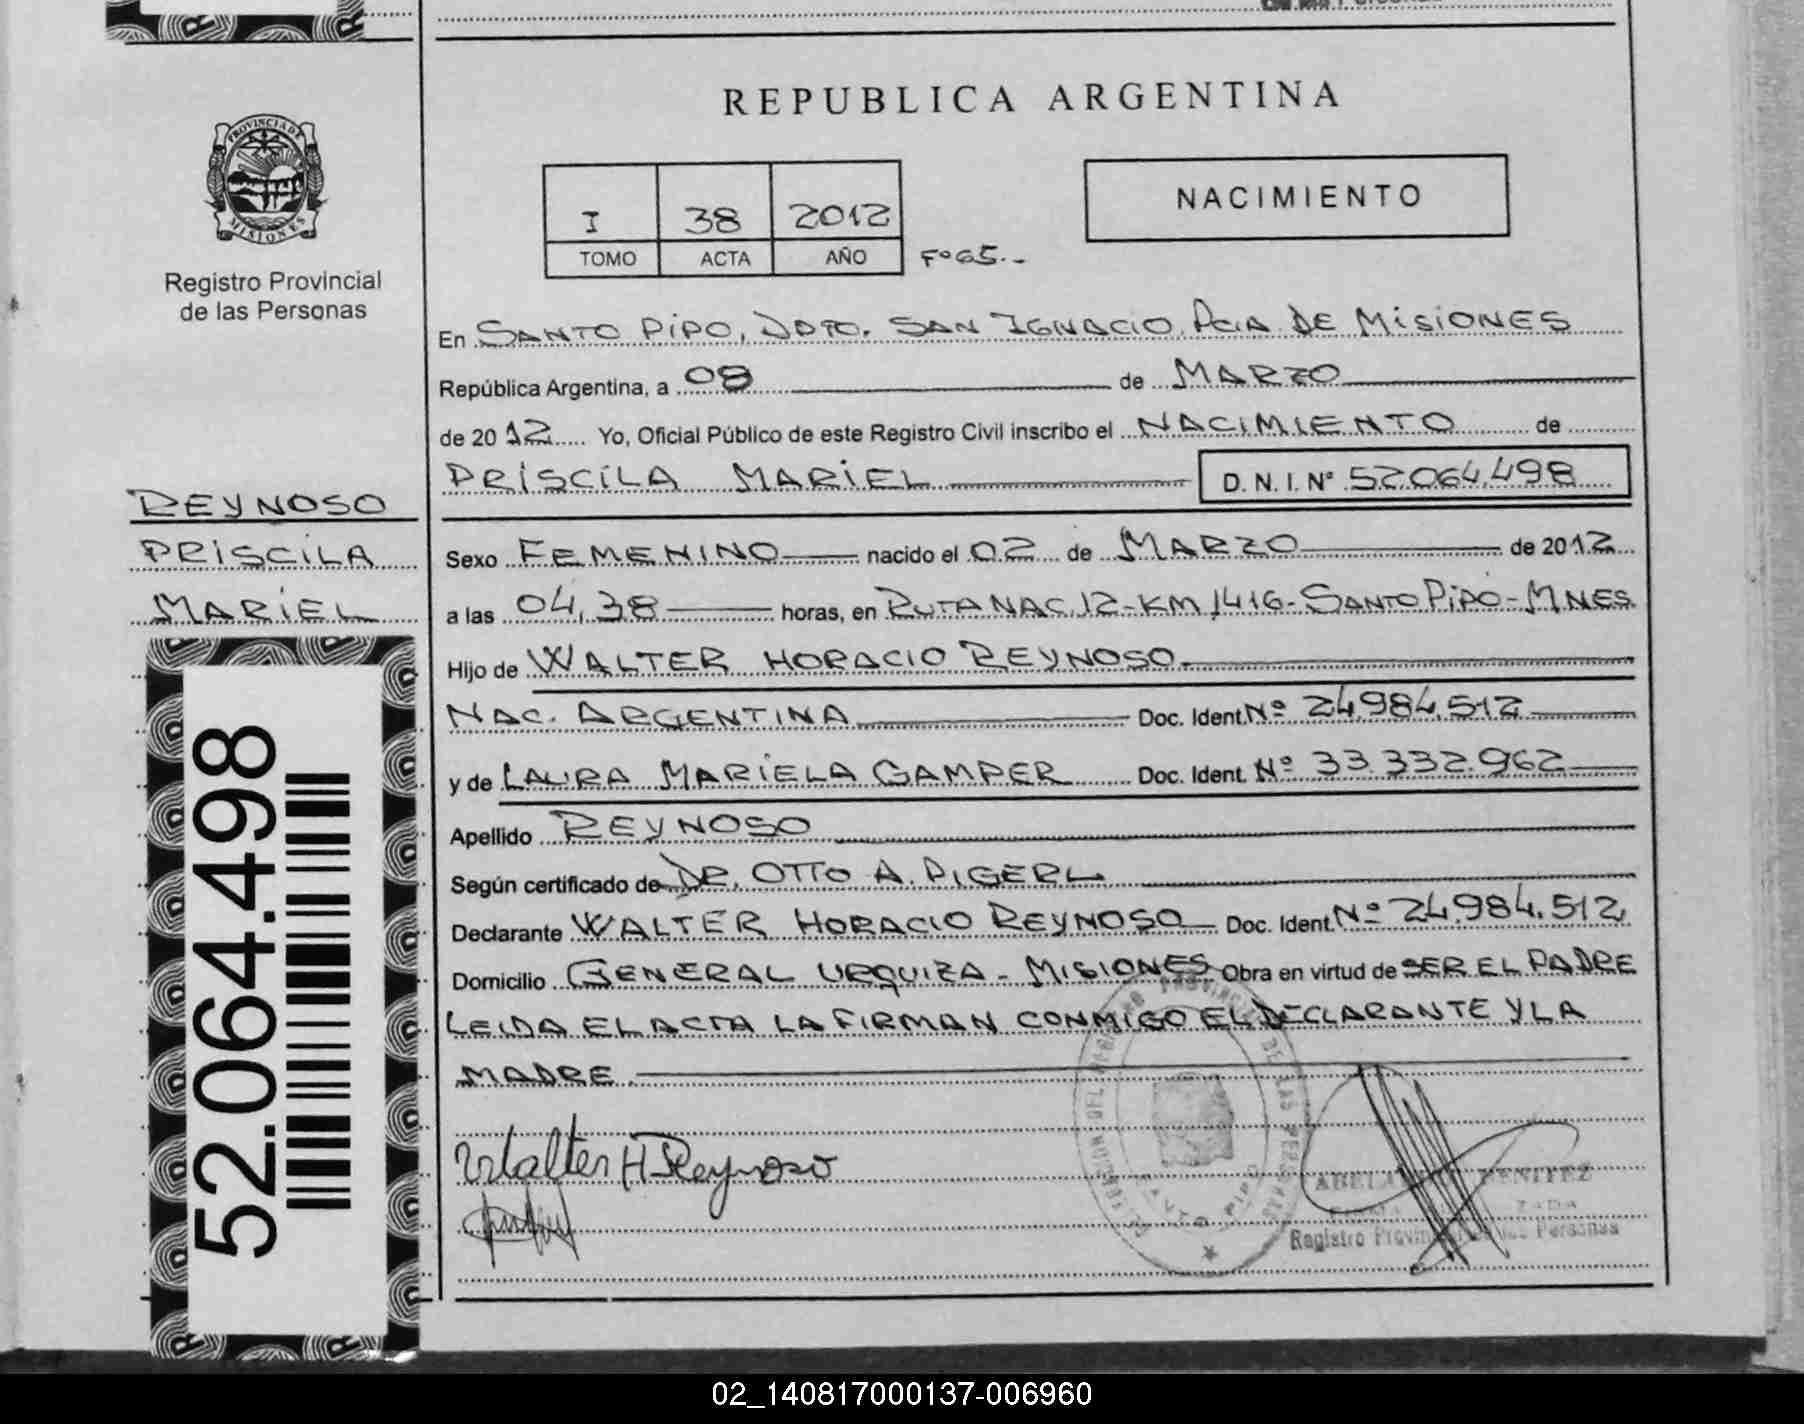 REPUBLICA ARGENTINA
PROVINCIA DE
MISIONES
Registro Provincial
de las Personas
I 38 2012
TOMO ACTA AÑO Fº 65.-
NACIMIENTO
En SANTO PIPO, DPTO. SAN IGNACIO, PCIA DE MISIONES
República Argentina, a 08 de MARZO
de 2012 Yo, Oficial Público de este Registro Civil inscribo el NACIMIENTO de
PRISCILA MARIEL D.N.I. Nº 52.064.498
REYNOSO
PRISCILA
MARIEL
52.064.498
Sexo FEMENINO nacido el 02 de MARZO de 2012
a las 04,38 horas, en RUTA NAC. 12-KM 1416-SANTO PIPO-MNES
Hijo de WALTER HORACIO REYNOSO
NAC. ARGENTINA Doc. Ident. Nº 24.984.512
y de LAURA MARIELA GAMPER Doc. Ident. Nº 33.332.962
Apellido REYNOSO
Según certificado de DR. OTTO A. PIGERL
Declarante WALTER HORACIO REYNOSO Doc. Ident. Nº 24.984.512
Domicilio GENERAL URQUIZA - MISIONES Obra en virtud de SER EL PADRE
LEIDA EL ACTA LA FIRMAN CONMIGO EL DECLARANTE Y LA
MADRE.
Walter H Reynoso
DEL REGISTRO PROVINCIAL DE LAS PERSONAS
SANTO PIPO
BENITEZ
Registro Provin Personas
02_140817000137-006960